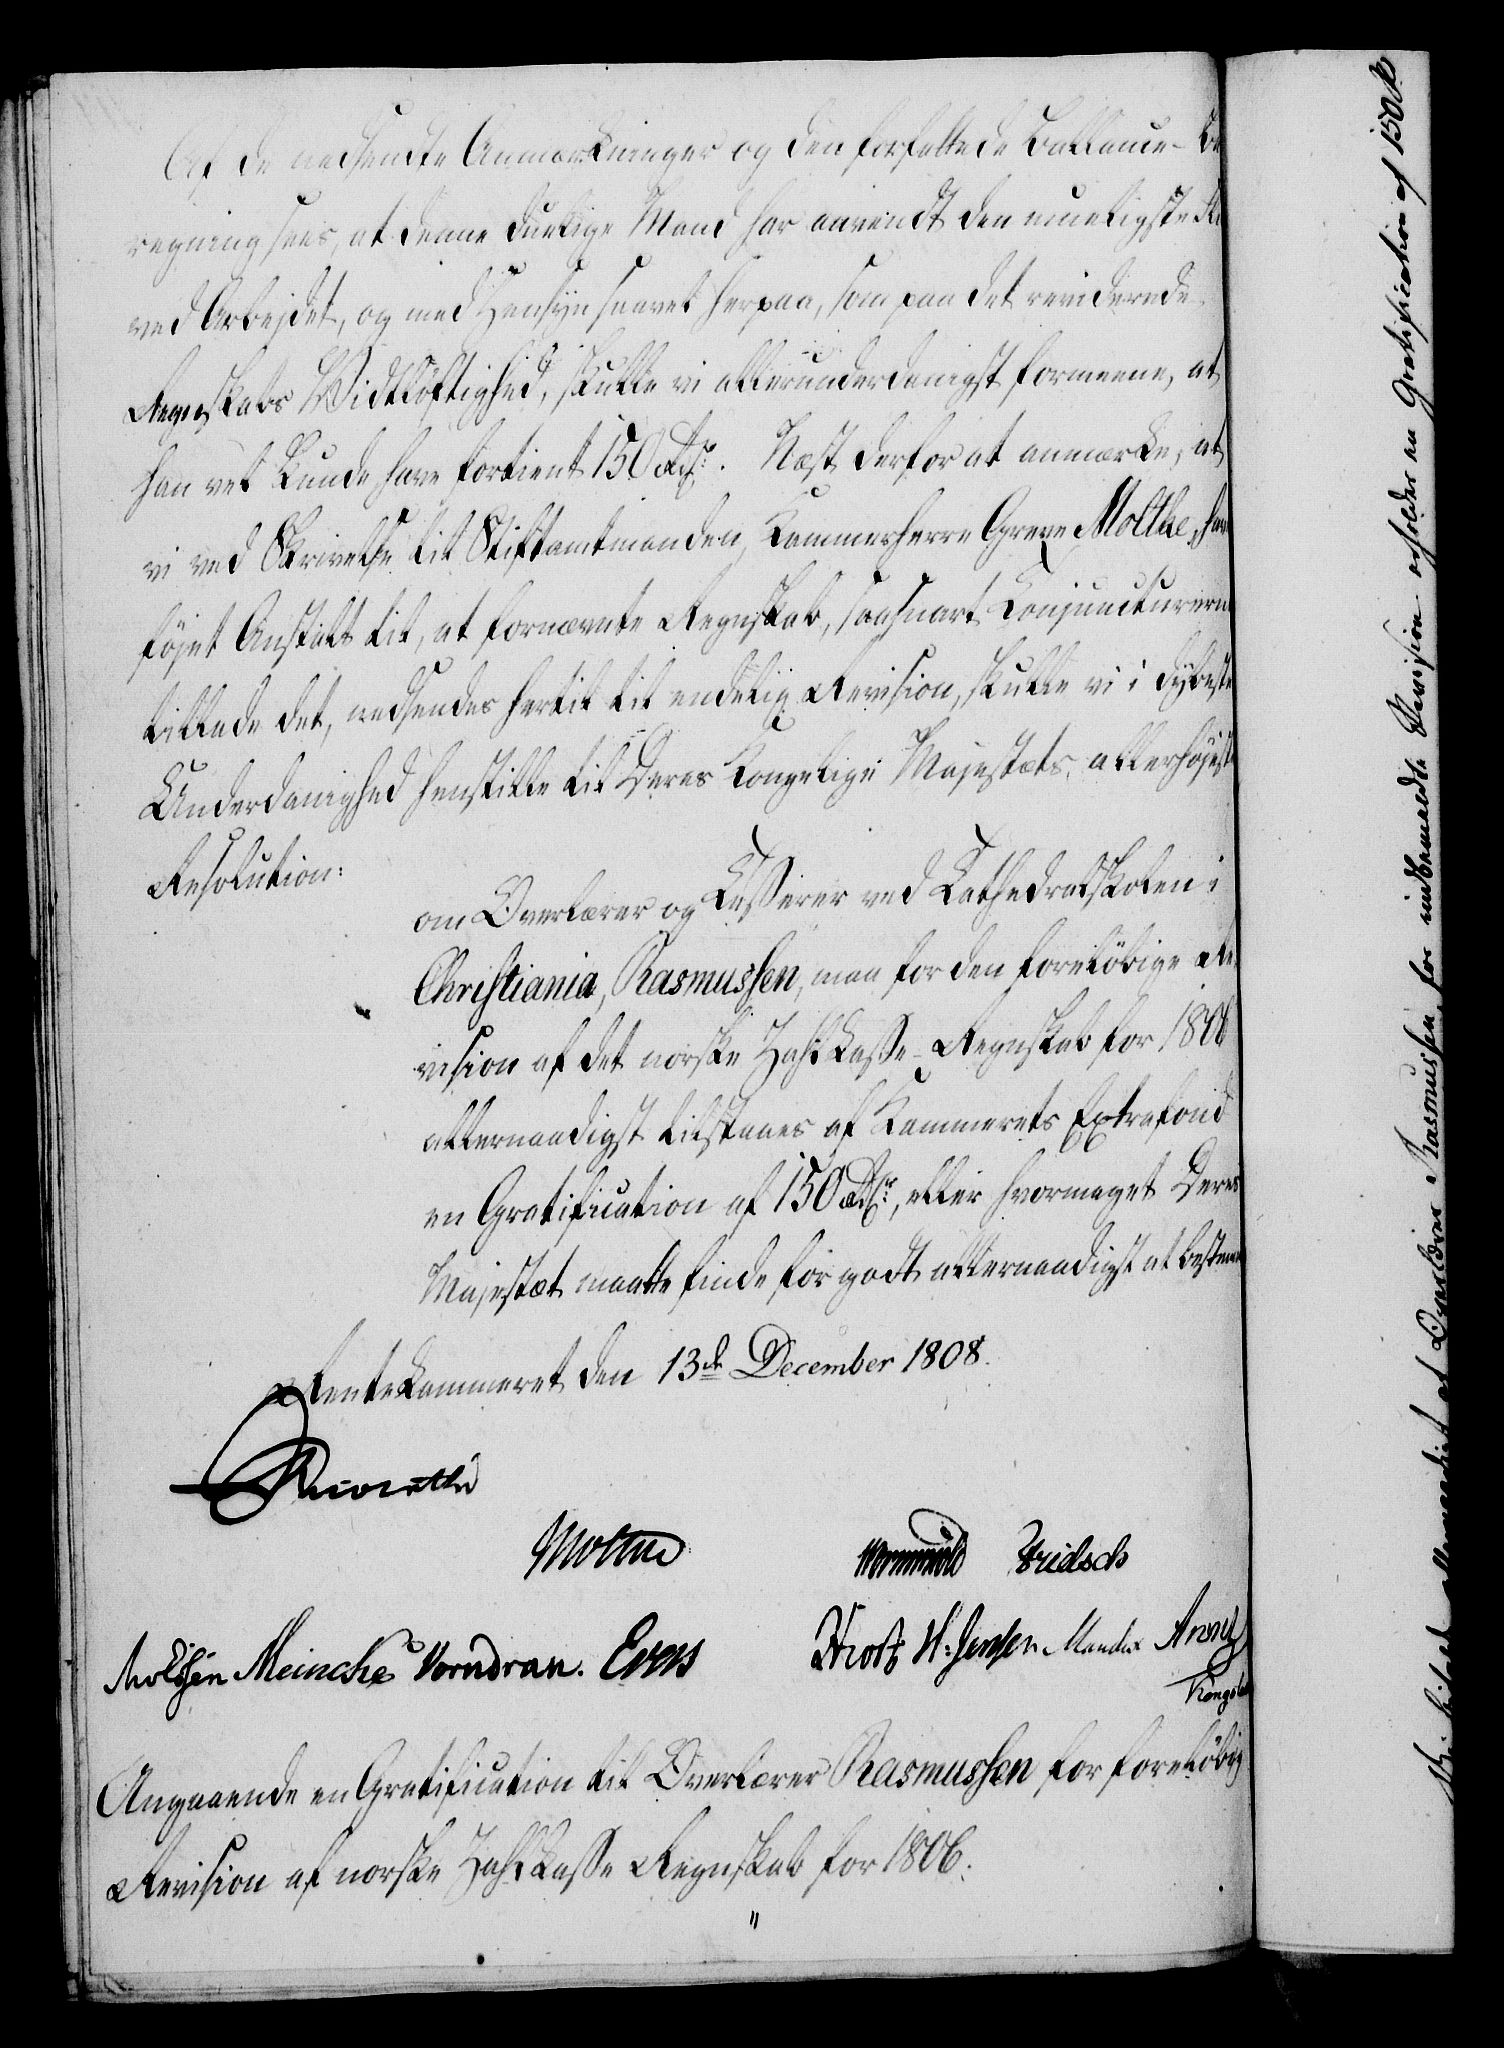 Af de nedsendte Anmærkninger og den forfattede Ballance-Be
regning sees, at denne duelige Mand har anvendt den mueligste Fli
ved Arbejdet, og med Hensyn saavel herpaa, som paa det reviderede
Regnskabs Vidtløftighed, skulle vi allerunderdanigst formeene, at
han vel kunde have fortient 150 Rdlr. Næst derfor at anmærke, at
vi ved Skrivelse til Stiftamtmanden, Kammerherre Greve Moltke, har
føjet Anstalt til, at fornævnte Regnskab, saasnart Conjuncturerne
tillade det, nedsendes hertil til endelig Revision, skulle vi i dybeste
Underdanighed henstille til Deres Kongelige Majestæts allerhøjeste
Resolution:
om Overlærer og Casserer ved Cathedralskolen i
Christiania, Rasmussen, maa for den foreløbige Re,
vision af det norske Zahlkasse-Regnskab for 1806
allernaadigst tilstaaes af Kammerets Extrafond
en Gratification af 150 Rdlr, eller hvormeget Deres
Majestæt maatte finde for godt allernaadigst at bestemme
Rentekammeret den 13de December 1808.
Reventlow
Moltke
Wormskiold Fridsch
Meincke Vorndran. Evers
Hiort W. Jensen Mandix Arentz
Angaaende en Gratification til Overlærer Rasmussen for foreløbig
Revision af norske Zahlkasse Regnskab for 1806.
"
allernaadigst, at Overlærer Rasmussen for indbemældte Revision erholder en Gratification af 150 Rdlr.